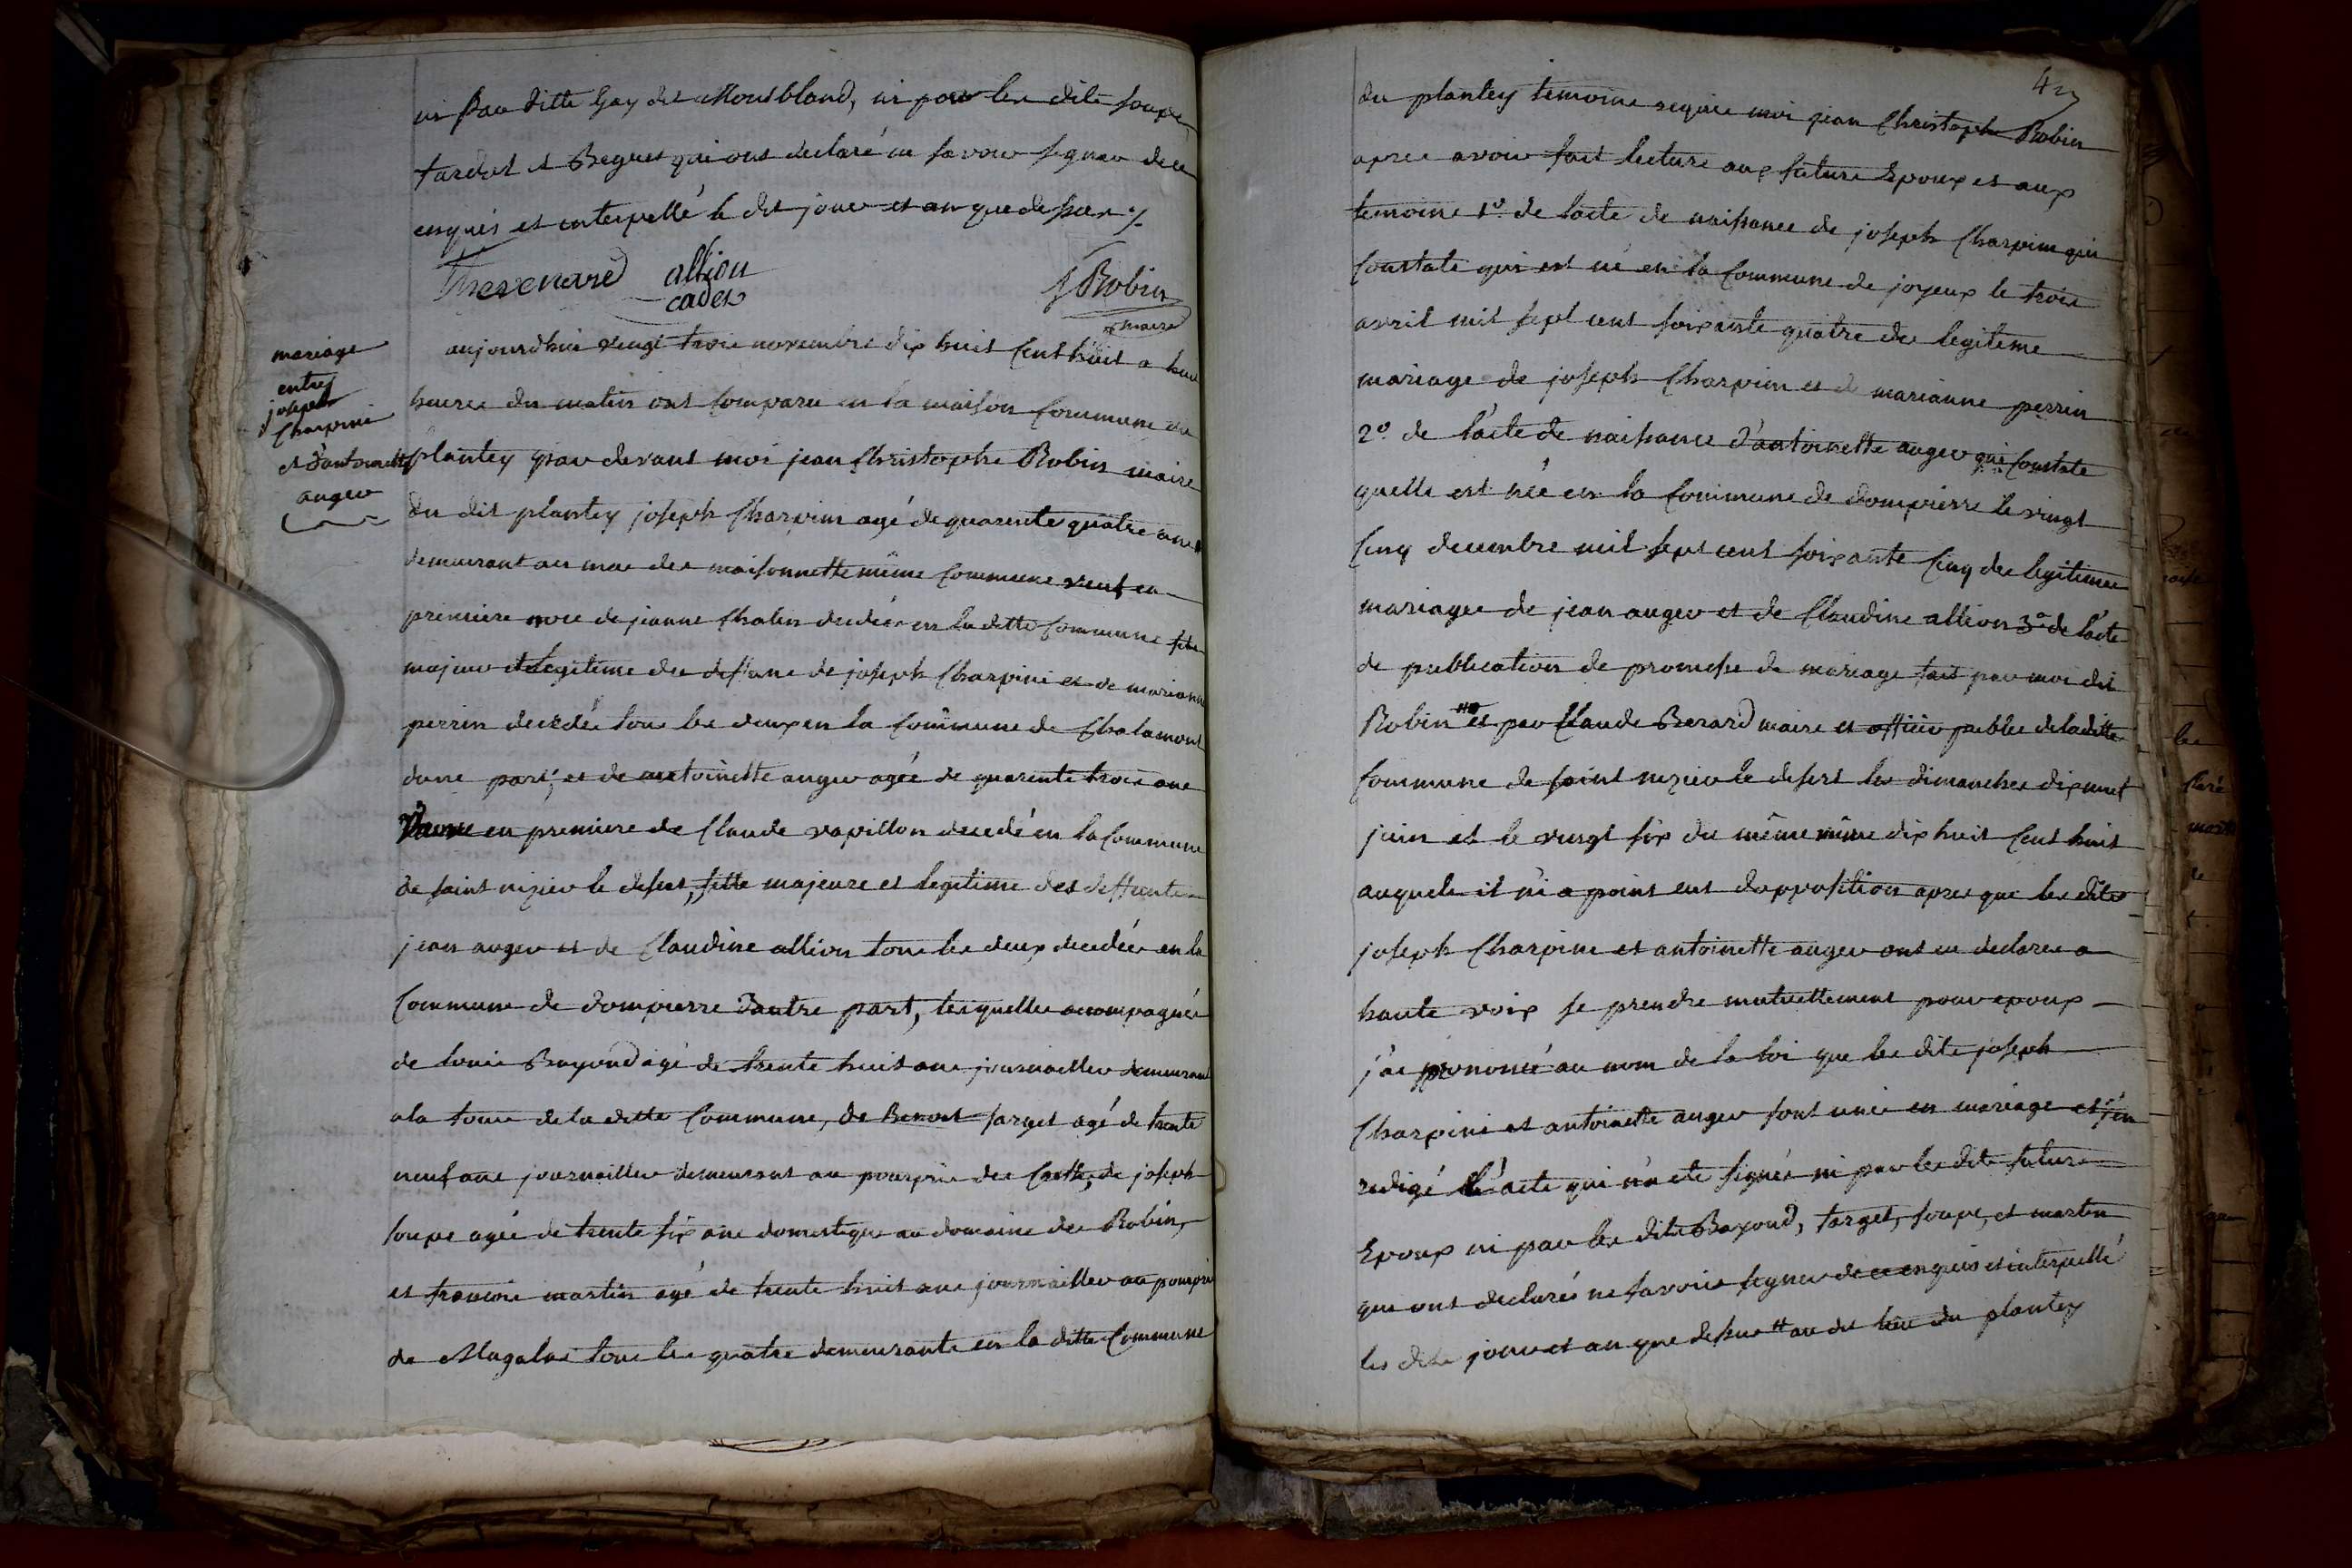 ni par ditte Gay dit Montbland, ni par les dits soupe
tardot et Begues qui ont declaré ne savoir signer de ce
enquis et interpellé le dit jour et an que dessus ./.
Thevenard allion cadet J Robin maire
mariage
entre
joseph
Charpine
et d'antoinette
auger
aujourdhui vingt trois novembre dix huit cent huit a huit
heures du matin ont comparu en la maison commune du
plantey par devant moi jean Christophe Robin maire
du dit plantey joseph Charpine agé de quarente quatre ans
demeurant au mas des maisonnette même commune veuf en
premiere noce de jeanne Chalin decedée en la ditte commune fils
majeur et legitime des deffunt de joseph Charpine et de marianne
perrin decedés tous les deux en la commune de Chalamont
dune part; et de antoinette auger agée de quarente trois ans
Veuve en premiere de Claude vapillon decedé en la commune
de saint nizier le desert, fille majeure et legitime des deffunts
jean auger et de Claudine allion tous les deux decedés en la
commune de dompierre dautre part, lesquelles acompagnés
de louis Bayond agé de trente huit ans journailler demeurant
a la tour de la ditte commune, de Benoit target agé de trente
neuf ans journailler demeurant au pourprix des Crotte, de joseph
soupe agée de trente six ans domestique au domaine des Robin,
et francois martin agé de trente huit ans journailler au pourprix
de Magalas tous les quatre demeurants en la ditte commune
43
du plantey temoins requis moi jean Christophe Robin
apres avoir fait lecture aux futurs Epoux et aux
temoins 1º de lacte de naissance de joseph Charpine qui
constate qui est né en la commune de joyeux le trois
avril mil sept cent soixante quatre du legitime
mariage de joseph Charpine et de marianne perrin
2º de l'acte de naissance d'antoinette auger qui constate
quelle est née en la commune de dompierre le vingt
cinq decembre mil sept cent soixante cinq des legitimes
mariages de jean auger et de Claudine allion 3º de l'acte
de publication de promesse de mariage fait par moi dit
Robin et par Claude Berard maire et officier public de la ditte
commune de saint nizier le desert les dimanches dix neuf
juin et le vingt six du même même dix huit cent huit
auquels il n'i a point eut dopposition apres que les dits
joseph Charpine et antoinette auger ont eu declarée a
haute voix se prendre mutuellement pour epoux
j'ai prononcé au nom de la loi que les dits joseph
Charpine et antoinette auger sont unis en mariage et j'en
redigé l'acte qui n'a eté signés ni par les dits futurs
Epoux ni par les dits Bayond, target, soupe, et martin
qui ont declarés ne savoir signer de ce enquis et interpellé
les dits jour et an que dessus # au dit lieu du plantey